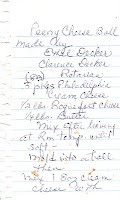 Peony Cheese Ball
Made by
Ethel Decker
Clarence Decker
Rotarian
3 pkgs Philadelphia
Cream Cheese
1/4 lb. Roquefort Cheese
1/4 lb. Butter
Mix after being
at Rm Temp until
soft -
Mold into a ball
then
Mix 1 8 oz Cream
Cheese